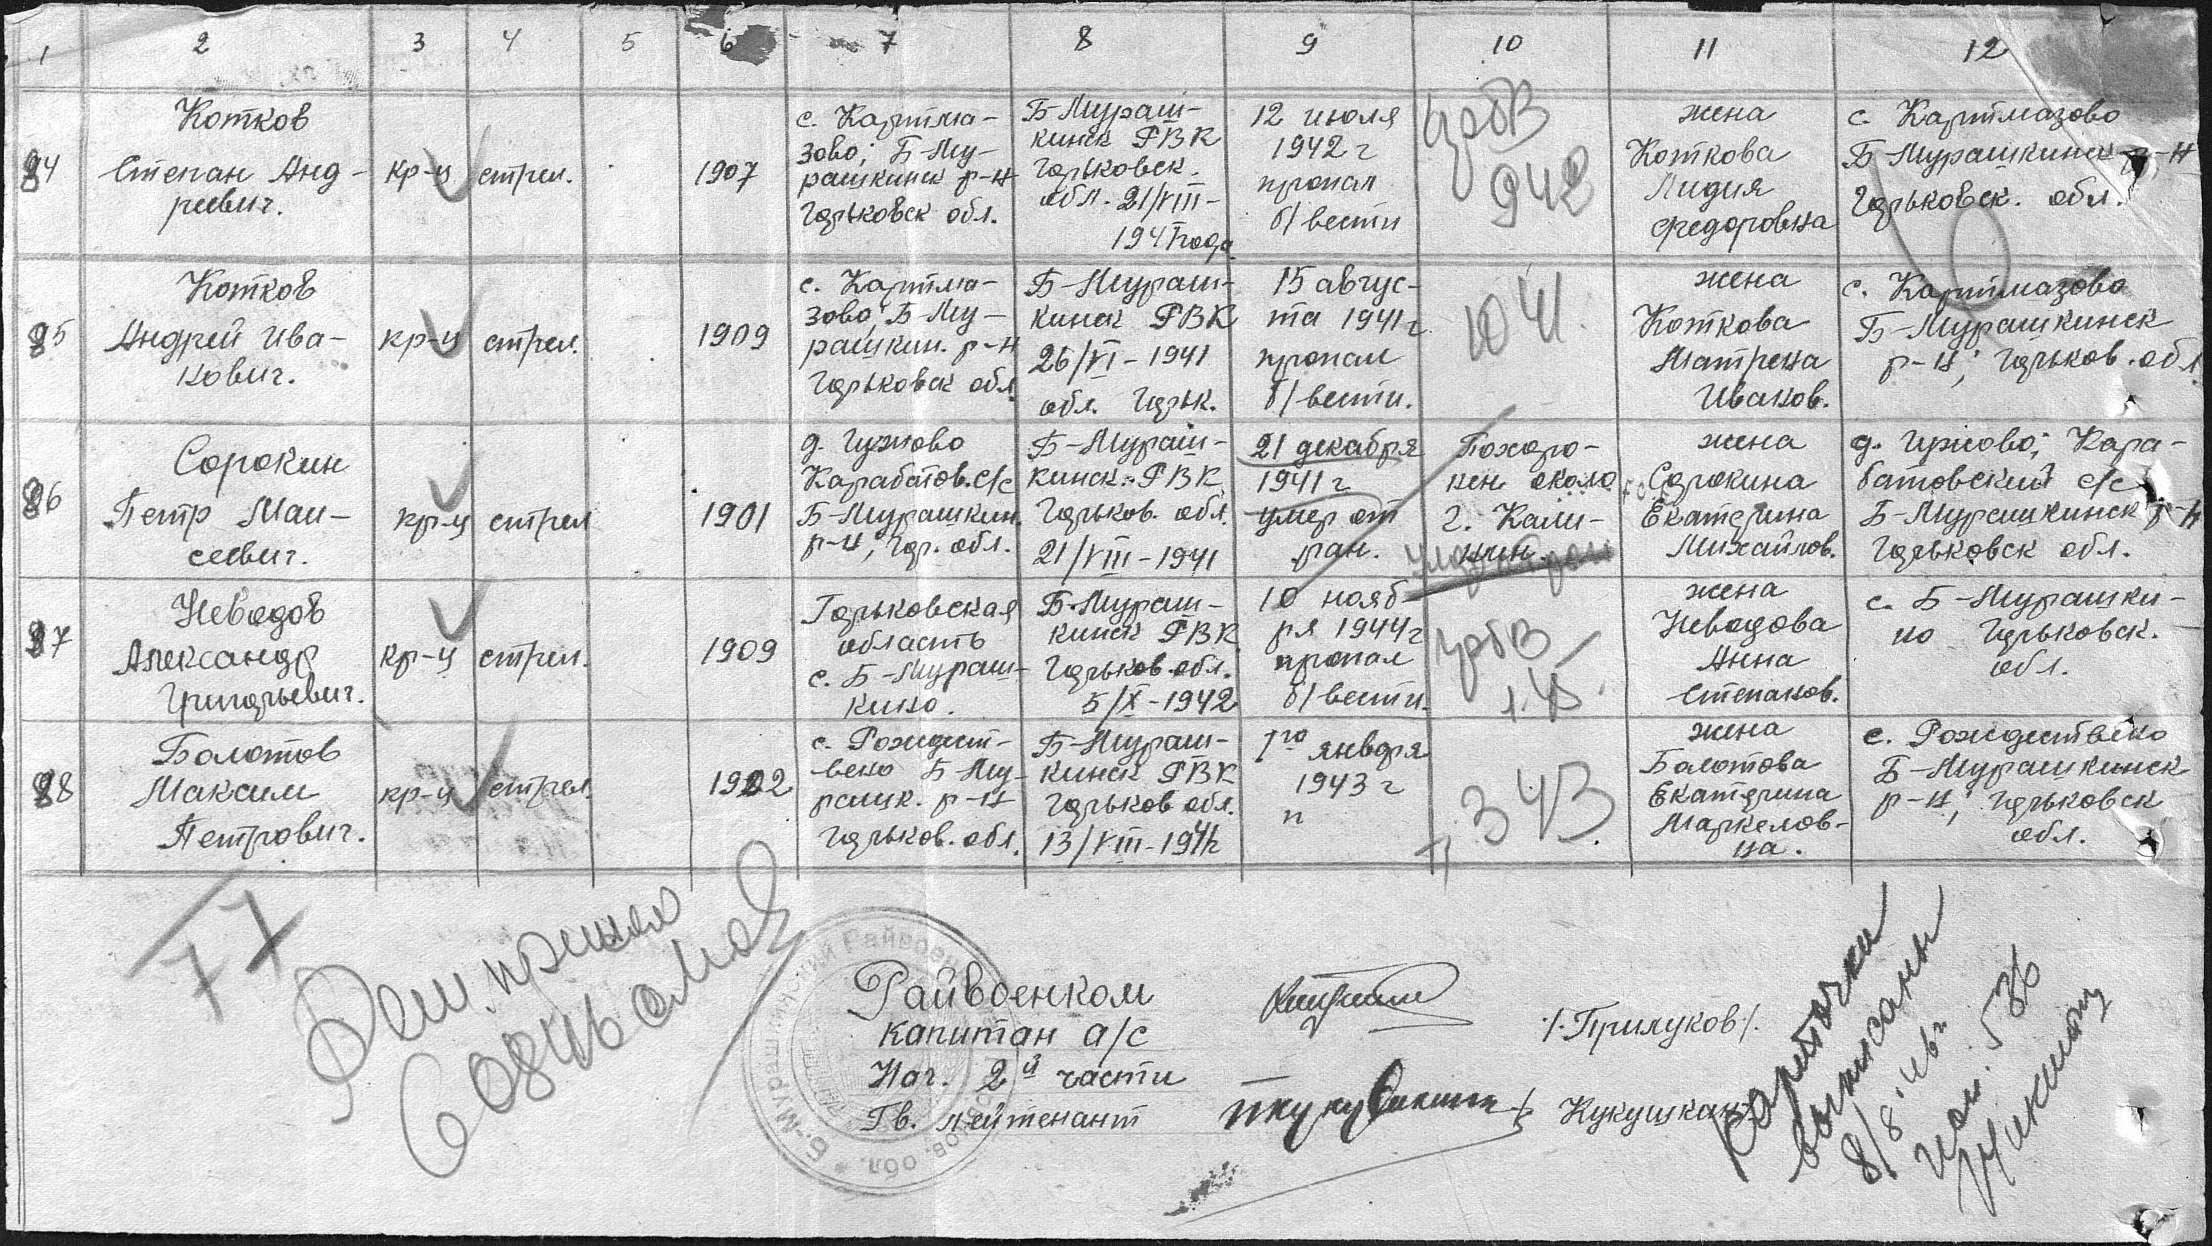 1 2 3 4 5 6 7 8 9 10 11 12
84
Котков
Степан Анд-
реевич.
кр-ц
стрел.
1907
с. Картма-
зово; Б-Му-
рашкинск р-н
Горьковск обл.
Б-Мураш-
кинск РВК
Горьковск.
обл. 21/VIII-
1941 года
12 июля
1942 г
пропал
б/вести
942
жена
Коткова
Лидия
Федоровна
с. Картмазово
Б-Мурашкинск р-н
Горьковск. обл.
85
Котков
Андрей Ива-
нович.
кр-ц
стрел.
1909
с. Картма-
зово Б-Му-
рашкин. р-н
Горьковск обл.
Б-Мураш-
кинск РВК
26/VI-1941
обл. Горьк.
15 авгус-
та 1941 г.
пропал
б/вести.
10 41.
жена
Коткова
Матрена
Иванов.
с. Картмазово
Б-Мурашкинск
р-н; Горьков. обл
86
Сорокин
Петр Мои-
сеевич.
кр-ц
стрел
1901
д. Гужово
Карабатов. с/с
Б-Мурашкин.
р-н, Гор. обл.
Б-Мураш-
кинск. РВК
Горьков. обл.
21/VIII-1941
21 декабря
1941 г
умер от
ран.
Похоро-
нен около
г. Кали-
нин.
жена
Сорокина
Екатерина
Михайлов.
д. Гужово; Кара-
батовский с/с
Б-Мурашкинск р-н
Горьковск обл.
87
Неводов
Александр
Григорьевич.
кр-ц
стрел.
1909
Горьковская
область
с. Б-Мураш-
кино.
Б-Мураш-
кинск РВК
Горьков. обл.
5/X-1942
10 нояб-
ря 1944 г
пропал
б/вести.
1.45
жена
Неводова
Анна
Степанов.
с. Б-Мурашки-
но Горьковск.
обл.
88
Болотов
Максим
Петрович.
кр-ц
стрел.
1902
с. Рождест-
вено Б-Му-
рашк. р-н
Горьков. обл.
Б-Мураш-
кинск РВК
Горьков обл.
13/VIII-1941г
1го января
1943 г
п
п. 343.
жена
Болотова
Екатерина
Маркелов-
на.
с. Рождествено
Б-Мурашкинск
р-н; Горьковск
обл.
77
Райвоенком
капитан а/с
/.Прилуков/.
Нач. 2й части
Гв. лейтенант
/Кукушкин/
Карточки
выписаны
8/8.46г